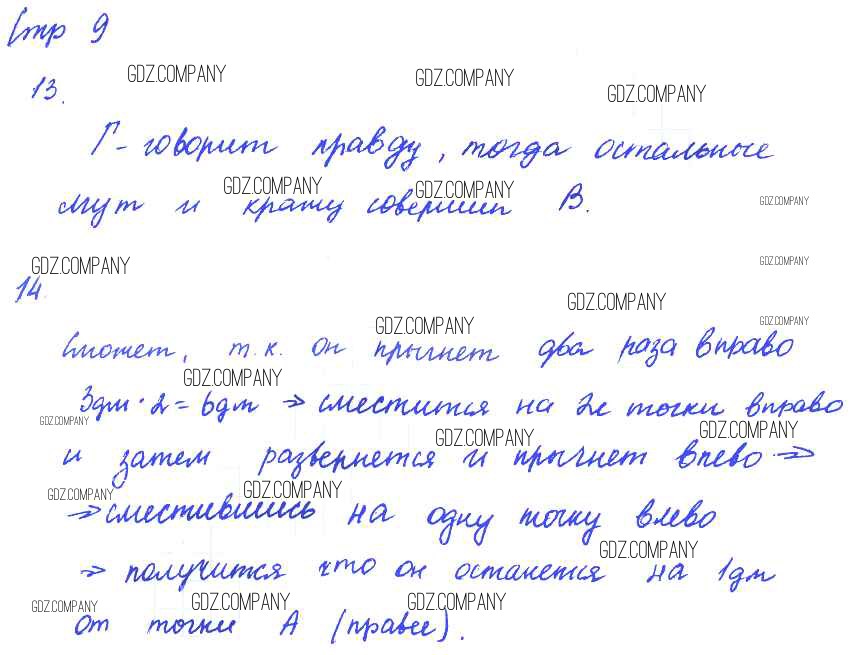 Стр 9
GDZ.COMPANY GDZ.COMPANY GDZ.COMPANY
13.
Г - говорит правду, тогда остальные
GDZ.COMPANY GDZ.COMPANY GDZ.COMPANY
лгут и кражу совершил В.
GDZ.COMPANY GDZ.COMPANY
14
GDZ.COMPANY GDZ.COMPANY GDZ.COMPANY
Сможет, т.к. он прыгнет два раза вправо
GDZ.COMPANY
3дм · 2 = 6дм => сместится на 2е точки вправо
GDZ.COMPANY GDZ.COMPANY GDZ.COMPANY
и затем развернется и прыгнет влево =>
GDZ.COMPANY GDZ.COMPANY
=> сместившись на одну точку влево
GDZ.COMPANY
=> получится что он останется на 1дм
GDZ.COMPANY GDZ.COMPANY GDZ.COMPANY
от точки А (правее).